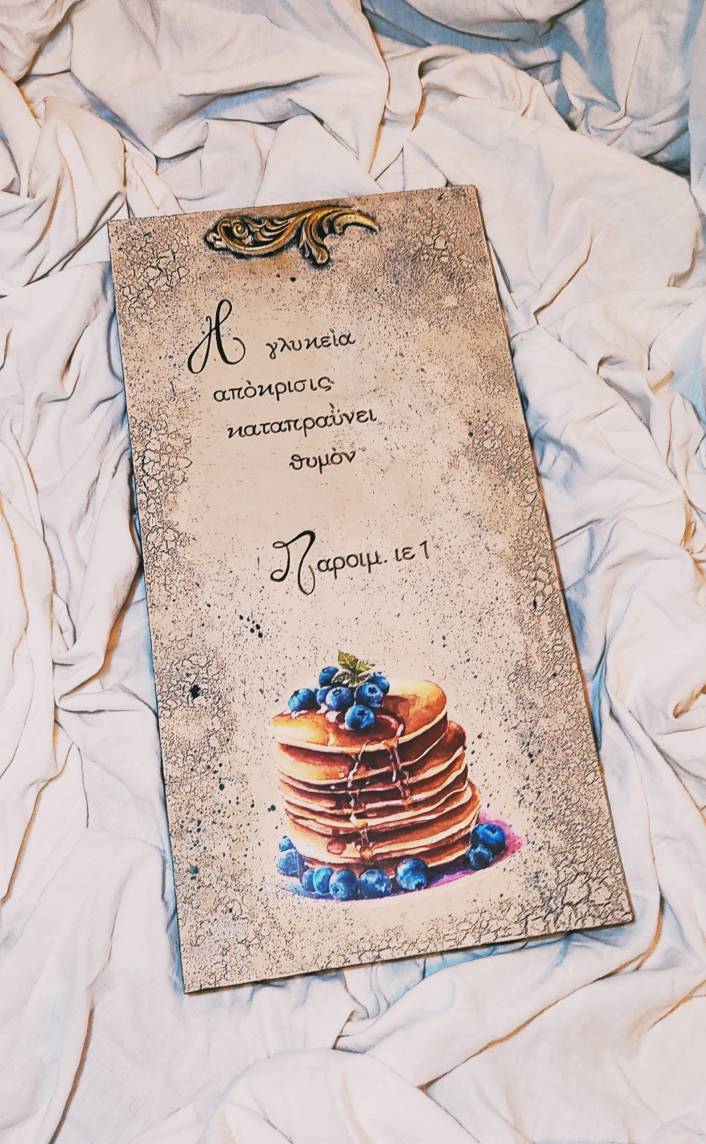 Η γλυκεὶα
απὸκρισις
καταπραὒνει
θυμὸν
Παροιμ. ιε 1